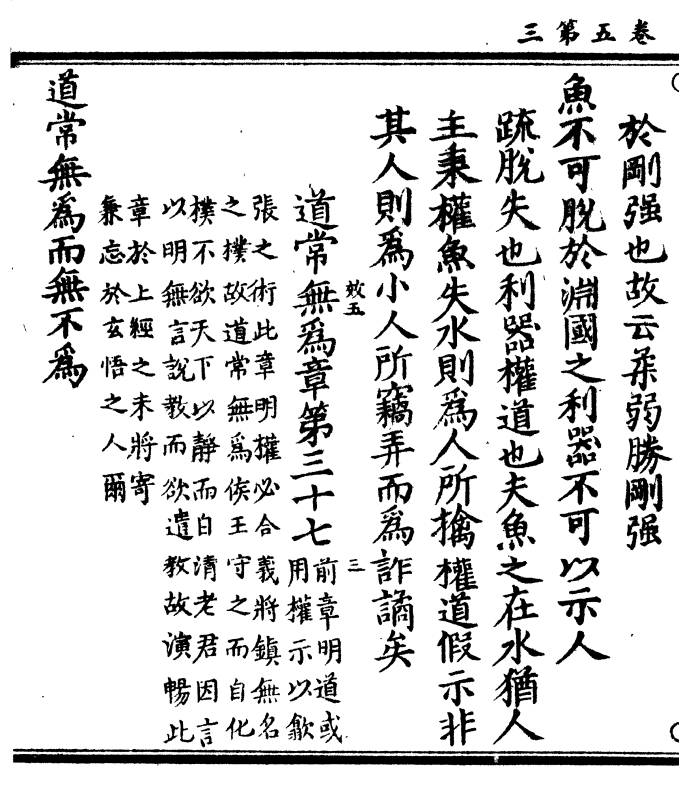 卷五第三
於剛强也故云柔弱勝剛强
魚不可脫於淵國之利器不可以示人
疏脫失也利器權道也夫魚之在水猶人
主秉權魚失水則為人所擒權道假示非
其人則為小人所竊弄而為詐譎矣
效五
三
道常無為章第三十七
前章明道或
用權示以歙
張之術此章明權必合義將鎮無名
之樸故道常無為侯王守之而自化
樸不欲天下以靜而自清老君因言
以明無言說教而欲遣教故演暢此
章於上經之末將寄
兼忘於玄悟之人爾
道常無為而無不為